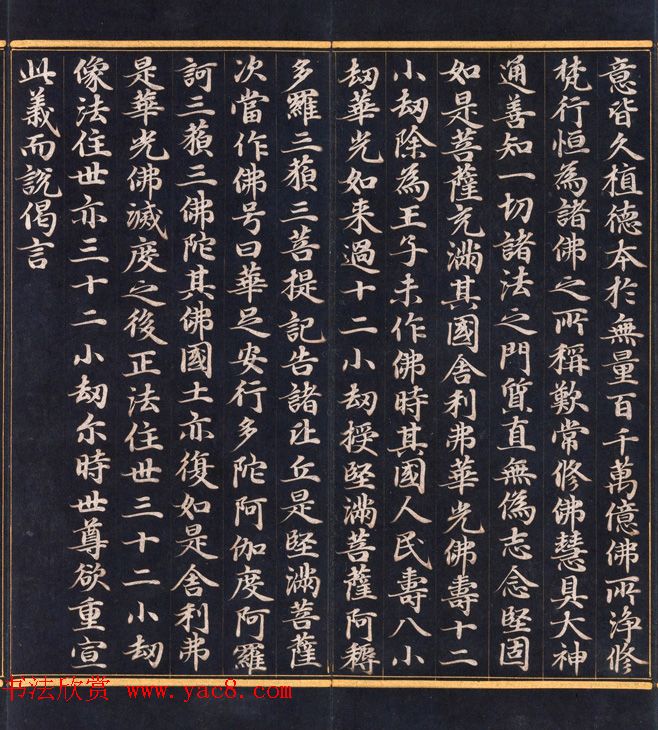 意皆久植德本於無量百千萬億佛所淨修
梵行恒為諸佛之所稱歎常修佛慧具大神
通善知一切諸法之門質直無偽志念堅固
如是菩薩充滿其國舍利弗華光佛壽十二
小劫除為王子未作佛時其國人民壽八小
劫華光如来過十二小劫授堅滿菩薩阿耨
多羅三藐三菩提記告諸比丘是堅滿菩薩
次當作佛号曰華足安行多陀阿伽度阿羅
訶三藐三佛陀其佛國土亦復如是舍利弗
是華光佛滅度之後正法住世三十二小劫
像法住世亦三十二小劫尓時世尊欲重宣
此義而說偈言
书法欣赏 www.yac8.com